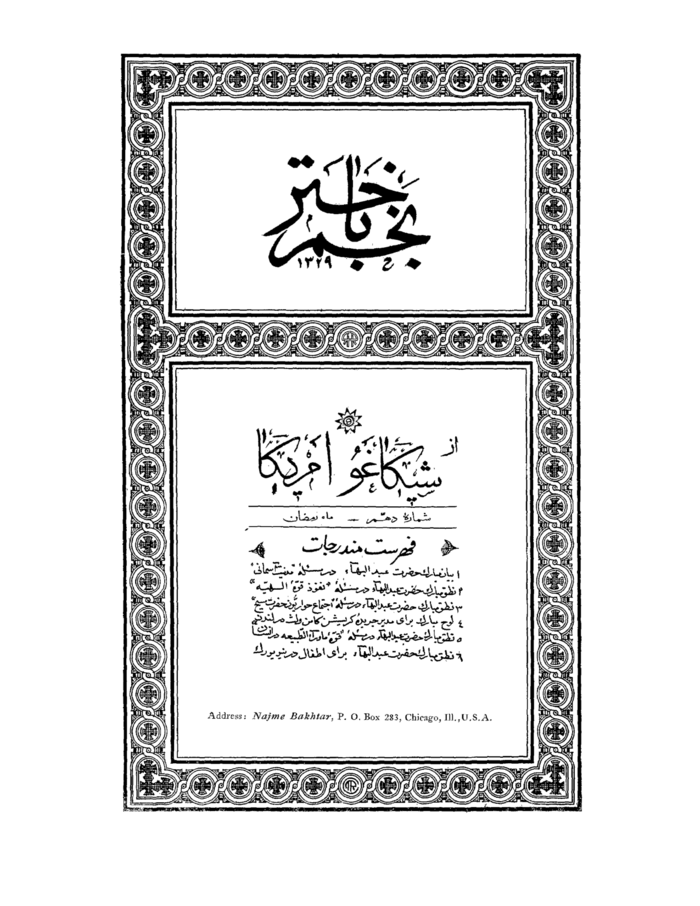 نجم باختر
۱۳۲۹
از
شیکاغو امریکا
شمارۀ دهم — ماه رمضان
فهرست مندرجات
۱ بیانات مبارک حضرت عبدالبهاء در مسئلۀ تربیت آسمانی
۲ نطق مبارک حضرت عبدالبهاء در مسئلۀ "نفوذ قوۀ الهیّه"
۳ نطق مبارک حضرت عبدالبهاء در مسئلۀ اجتماع حواریّون حضرت مسیح
٤ لوح مبارک برای مدیر جریدۀ کریسشن کامن ولث در لندن
۵ نطق مبارک حضرت عبدالبهاء در مسئلۀ "قوۀ ماوراء الطّبیعه در انسان"
٦ نطق مبارک حضرت عبدالبهاء برای اطفال در نیویورک
Address: Najme Bakhtar, P. O. Box 283, Chicago, Ill., U.S.A.